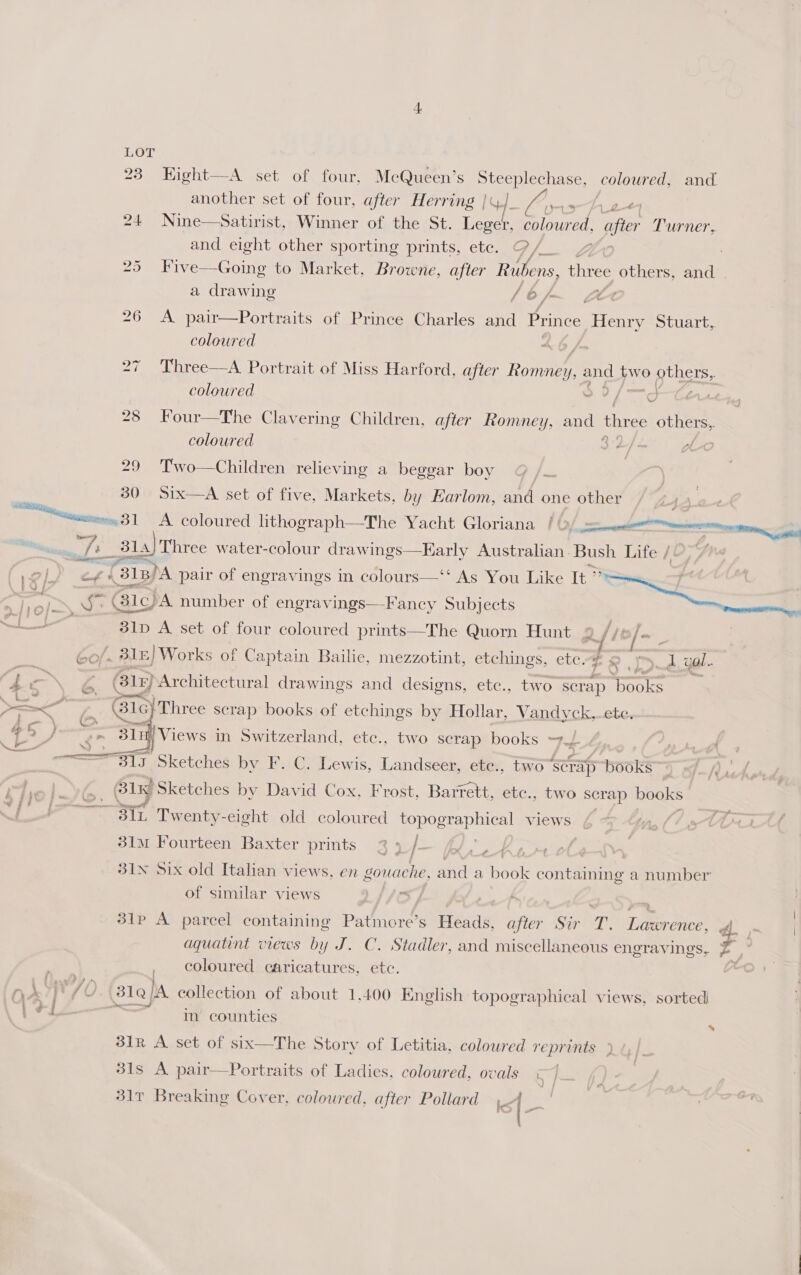 4
LOT
23 Eight—A set of four, McQueen's Steeplechase, coloured, and
another set of four, after Herring
24 Nine—Satirist, Winner of the St. Leger, coloured, after Turner,
and eight other sporting prints, etc.
25 Five—Going to Market, Browne, after Rubens, three others, and
a drawing
26 A pair—Portraits of Prince Charles and Prince Henry Stuart,
coloured
27 Three—A Portrait of Miss Harford, after Romney, and two others,
coloured
28 Four—The Clavering Children, after Romney, and three others,
coloured
29 Two—Children relieving a beggar boy
30 Six—A set of five, Markets, by Earlom, and one other
31 A coloured lithograph—The Yacht Gloriana
31A Three water-colour drawings—Early Australian Bush Life
31B A pair of engravings in colours—“ As You Like It ”
31C A number of engravings—Fancy Subjects
31D A set of four coloured prints—The Quorn Hunt
60/- 31E Works of Captain Bailie, mezzotint, etchings, etc. 1 vol.
31F Architectural drawings and designs, etc., two scrap books
31G Three scrap books of etchings by Hollar, Vandyck, etc.
31H Views in Switzerland, etc., two scrap books
31J Sketches by F. C. Lewis, Landseer, etc., two scrap books
31K Sketches by David Cox, Frost, Barrett, etc., two scrap books
31L Twenty-eight old coloured topographical views
31M Fourteen Baxter prints
31N Six old Italian views, en gouache, and a book containing a number
of similar views
31P A parcel containing Patmore's Heads, after Sir T. Lawrence,
aquatint views by J. C. Stadler, and miscellaneous engravings,
coloured caricatures, etc.
31Q A collection of about 1,400 English topographical views, sorted
in counties
31R A set of six—The Story of Letitia, coloured reprints
31S A pair—Portraits of Ladies, coloured, ovals
31T Breaking Cover, coloured, after Pollard